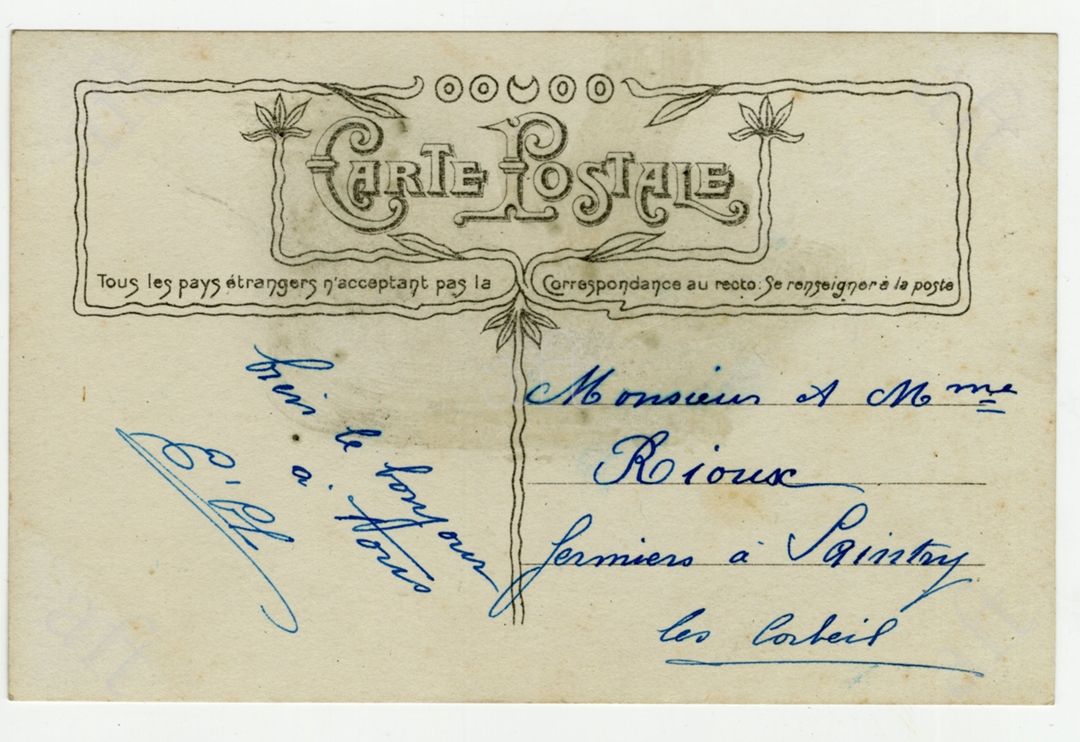 CARTE POSTALE
Tous les pays étrangers n'acceptant pas la Correspondance au recto: Se renseigner à la poste
bien le bonjour
a Vous
Monsieur et Mme
Rioux
fermiers à Saintry
les Corbeil